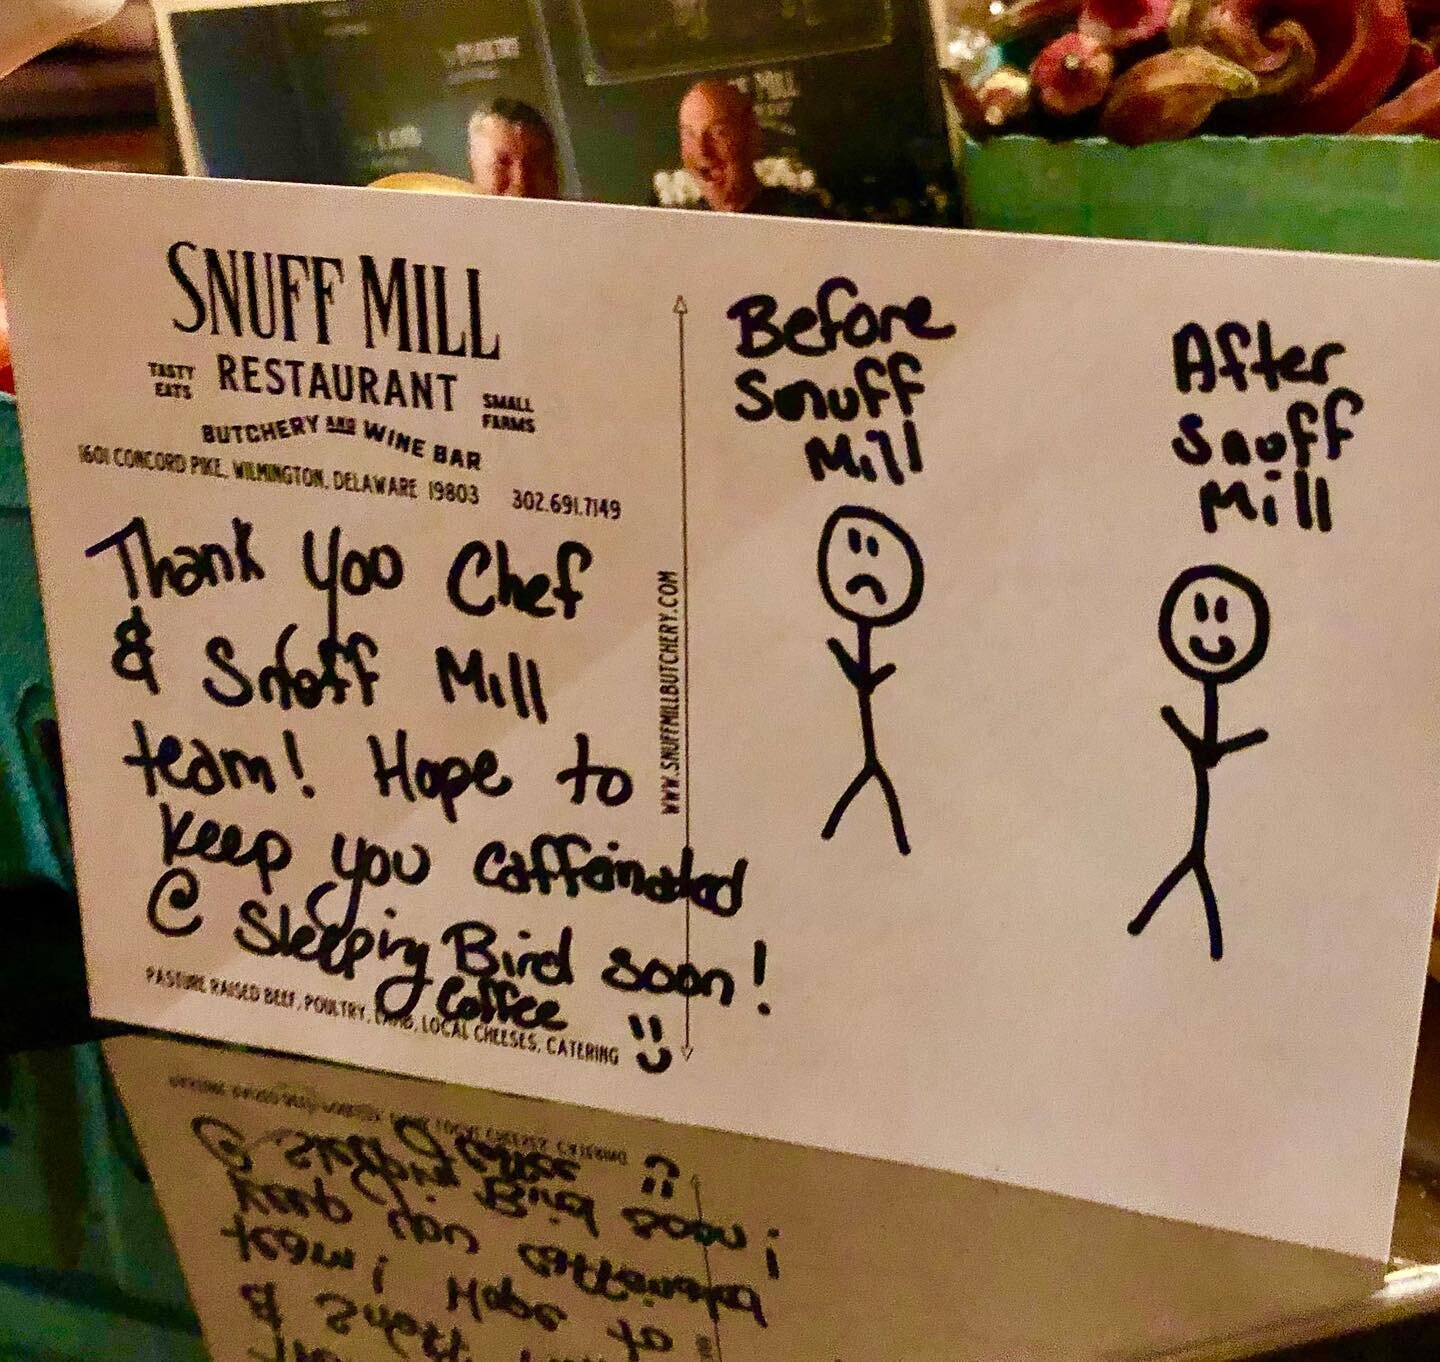 SNUFF MILL
TASTY EATS RESTAURANT SMALL FARMS
BUTCHERY AND WINE BAR
1601 CONCORD PIKE, WILMINGTON, DELAWARE 19803 302.691.7149
Thank you Chef
& Snuff Mill
team! Hope to
keep you caffeinated
@ Sleeping Bird soon!
Coffee
PASTURE RAISED BEEF, POULTRY, LAMB, LOCAL CHEESES, CATERING
WWW.SNUFFMILLBUTCHERY.COM
Before
Snuff
Mill
After
Snuff
Mill